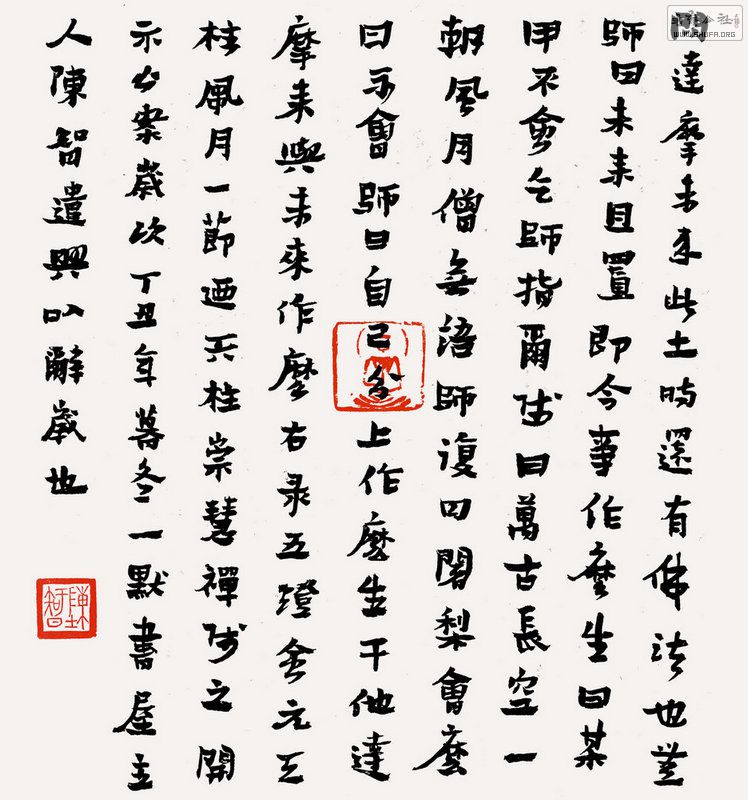 問達摩未来此土時還有佛法也無
師曰未来且置即今事作麼生曰某
甲不會乞師指爾師曰萬古長空一
朝風月僧無語師復曰闍梨會麼
曰不會師曰自己分上作麼生干他達
摩来與未來作麼右录五燈會元天
柱風月一節迺天柱崇慧禪師之開
示公案歲次丁丑年暮冬一默書屋主
人陳智遣興以辭歲也
陳智
WWW.SHUFA.ORG